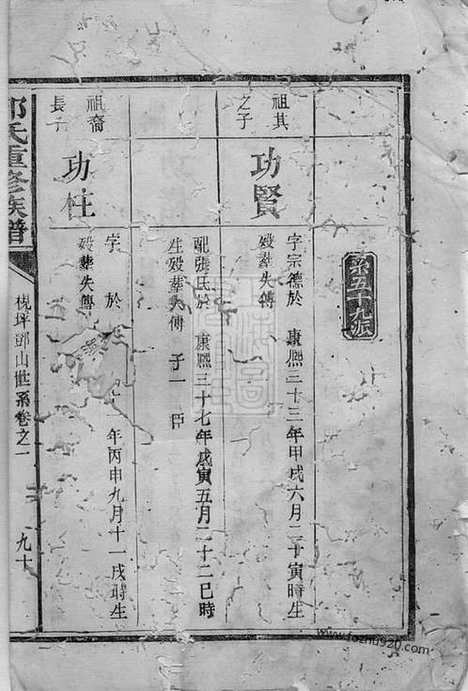 系五十九派
祖其
之子
功賢
字宗德於 康熙三十三年甲戌六月二十寅時生
歿葬失傳
配張氏於 康熙三十七年戊寅五月二十二巳時
生歿葬失傳 子一 臣
祖裔
長子
功柱
字 於 年丙申九月十一戌時生
歿葬失傳
氏重修族譜
梘坪鄧山世系卷之一
九十
www.fozhu920.com